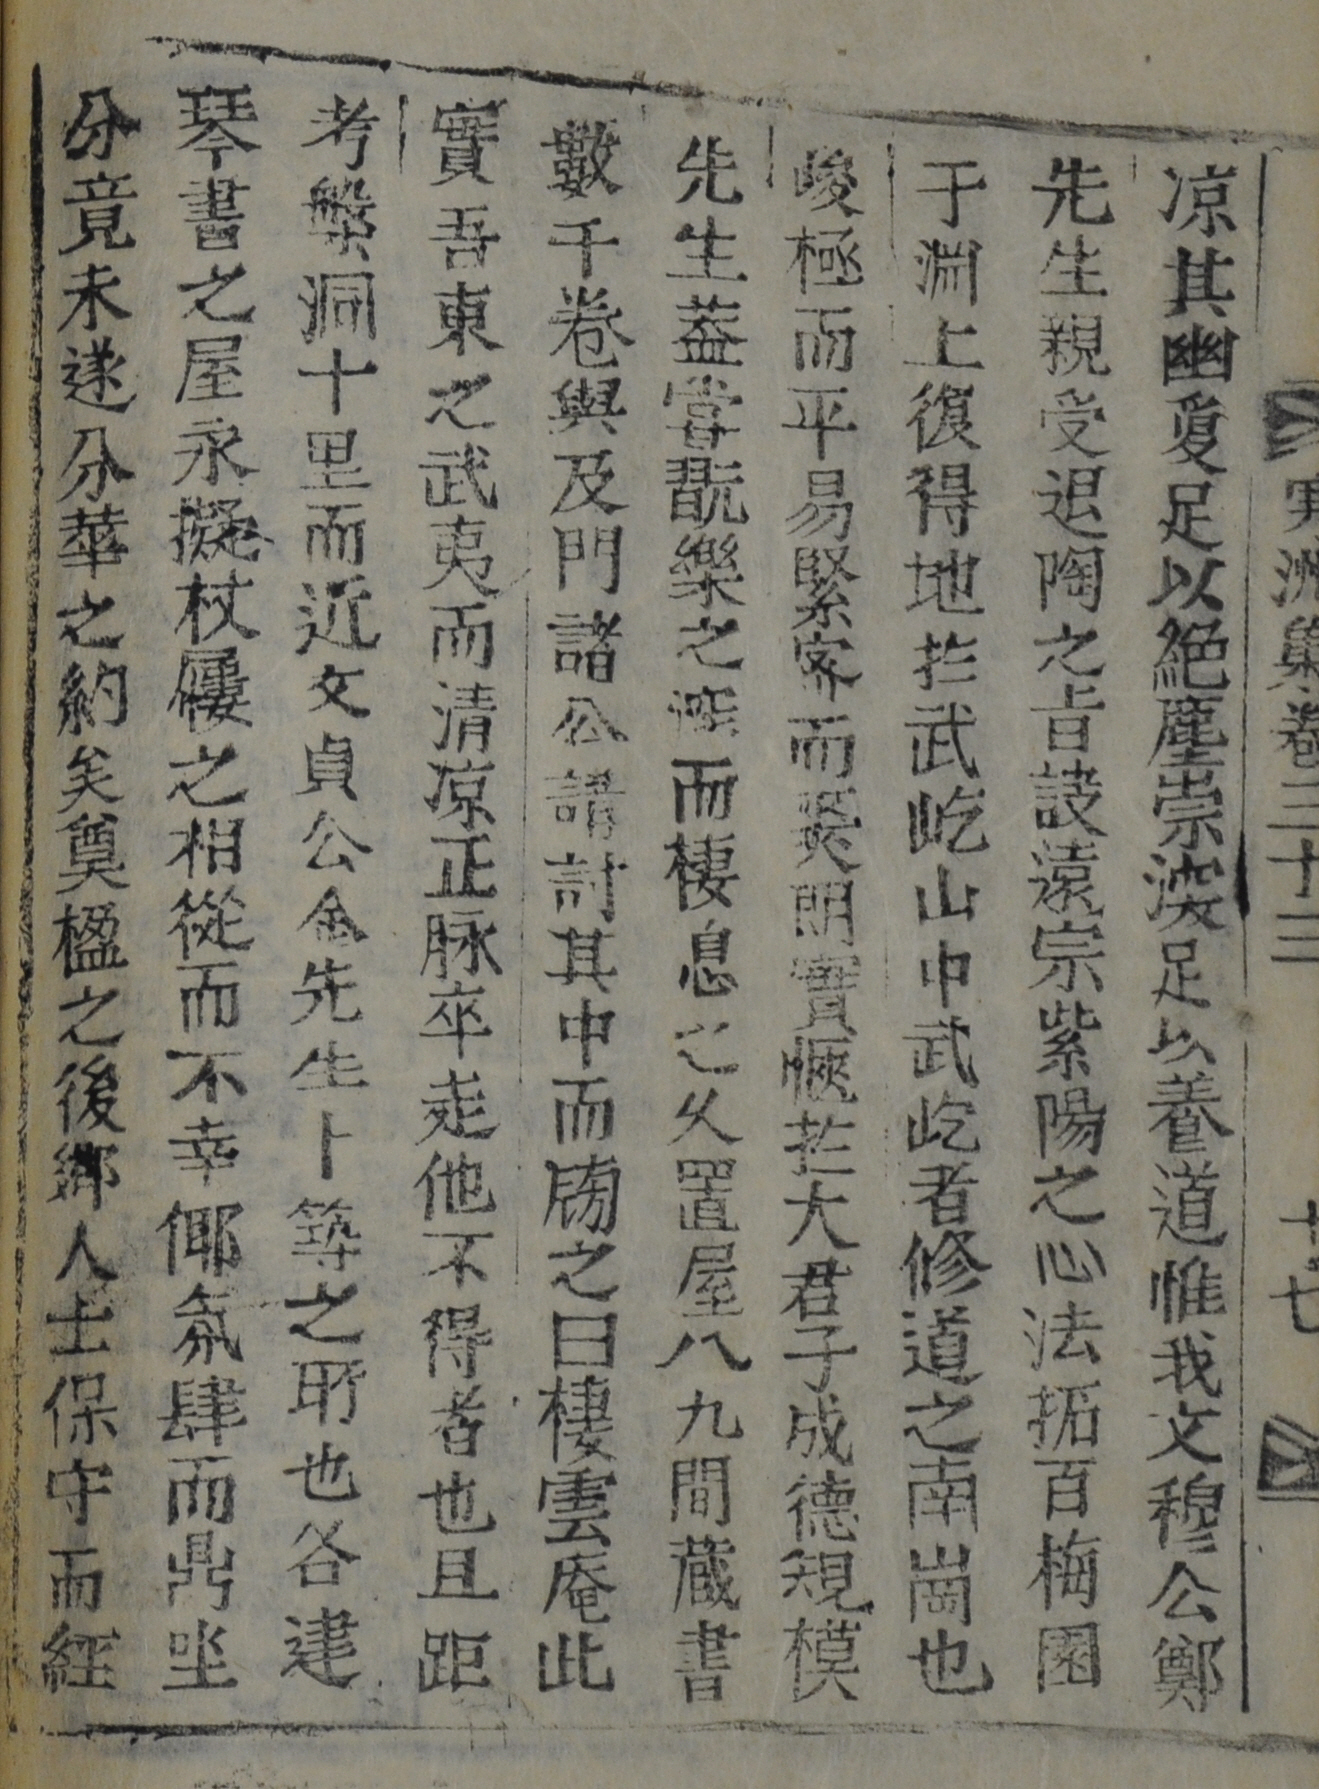 寒洲集卷三十三
十七
凉其幽敻足以絕塵崇深足以養道惟我文穆公鄭
先生親受退陶之旨訣遠宗紫陽之心法拓百梅園
于淵上復得地於武屹山中武屹者修道之南崗也
峻極而平易緊密而爽朗實愜於大君子成德規模
先生蓋嘗翫樂之深而棲息之久置屋八九間藏書
數千卷與及門諸公講討其中而牓之曰棲雲庵此
實吾東之武夷而清凉正脉卒走他不得者也且距
考槃洞十里而近文貞公金先生卜築之所也各建
琴書之屋永擬杖屨之相從而不幸倻氛肆而鼎坐
分竟未遂分華之約矣奠楹之後鄉人士保守而經